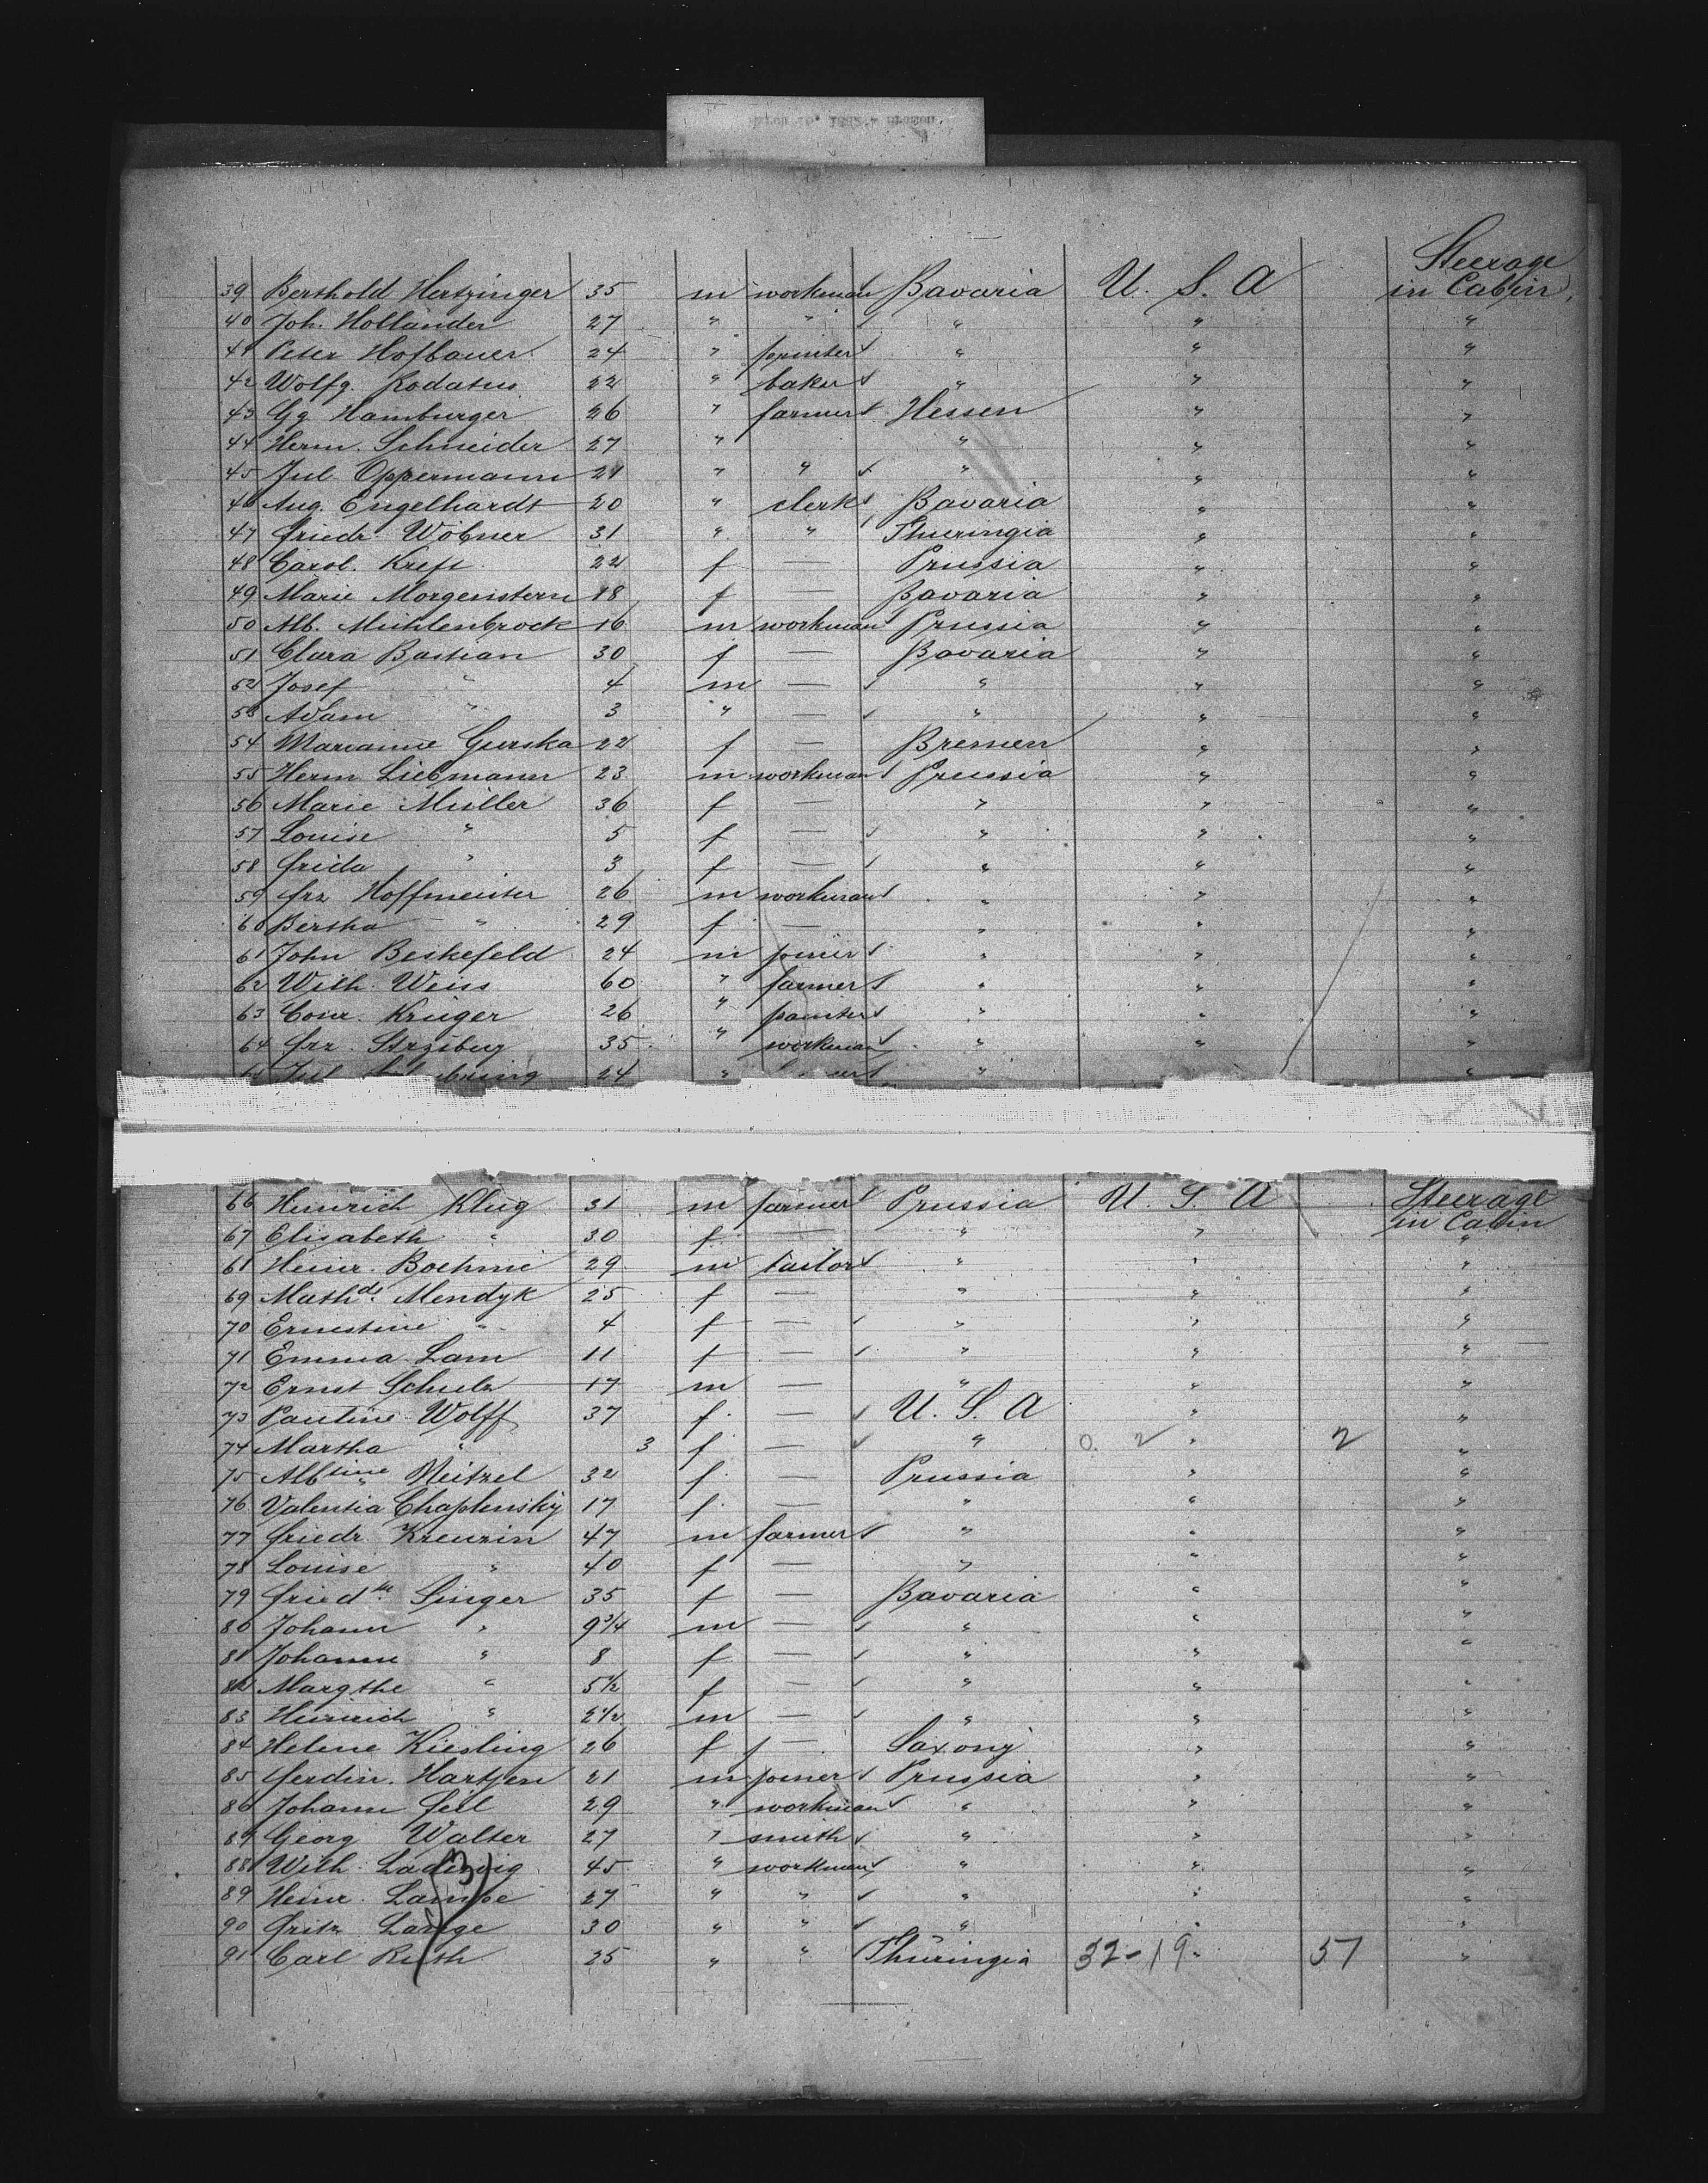 Steerage
39 Berthold Hertzinger 35 m workman Bavaria U. S. A in Cabin
40 Joh. Holländer 27 " " " " "
41 Peter Hofbauer 24 " " " "
42 Wolfg. Kodatus 22 " baker " " "
43 Gg Hamburger 26 " farmer Hessen " "
44 Herm. Schneider 27 " " " "
45 Jul. Oppermann 21 " " " " "
46 Aug. Engelhardt 20 " clerk Bavaria " "
47 Friedr. Wöbner 31 " " Thueringia " "
48 Carol. Kreft 22 f — Prussia " "
49 Marie Morgenstern 18 f — Bavaria " "
50 Alb. Muhlenbrock 16 m workman Prussia " "
51 Clara Bastian 30 f — Bavaria " "
52 Josef " 4 m — " " "
53 Adam " 3 " — " " "
54 Marianne Gurska 22 f — Bremen " "
55 Herm. Liebmann 23 m workman Prussia " "
56 Marie Müller 36 f — " " "
57 Louise " 5 f — " " "
58 Frida " 3 f — " " "
59 Frz Hoffmeister 26 m workman " " "
60 Bertha " 29 f — " " "
61 John Beskefeld 24 m joiner " " "
62 Wilh. Weiss 60 " farmer " " "
63 Conr. Krüger 26 " painter " " "
64 Frz. Strziburg 35 " workman " " "
Jul. 24 " " "
66 Heinrich Klug 31 m farmer Prussia U. S. A Steerage
in Cabin
67 Elisabeth " 30 f — " " "
61 Heinr. Boehme 29 m tailor " " "
69 Mathde. Mendyk 25 f — " " "
70 Ernestine " 4 f — " " "
71 Emma Lam 11 f — " " "
72 Ernst Schulz 17 m — " " "
73 Pauline Wolff 37 f — U. S. A " "
74 Martha " 3 f — " 0. 2 " 2 "
75 Albtine Neitzel 32 f — Prussia " "
76 Valentia Chaplensky 17 f — " " "
77 Friedr. Kreuzin 47 m farmer " " "
78 Louise " 40 f — " " "
79 Friedke. Singer 35 f — Bavaria " "
80 Johann " 9 3/4 m — " " "
81 Johanne " 8 f — " " "
82 Margthe " 5 1/2 f — " " "
83 Heinrich " 2 1/2 m — " " "
84 Helene Kiesling 26 f — Saxony " "
85 Ferdin. Hartjen 21 m joiner Prussia " "
86 Johann Feil 29 " workman " " "
87 Georg Walter 27 " smith " " "
88 Wilh. Ladewig 45 " workman " " "
89 Heinr. Lampe 27 " " " " "
90 Fritz Lange 30 " " " " "
91 Carl Ruth 25 " " Thüringia 32-19 " 51 "